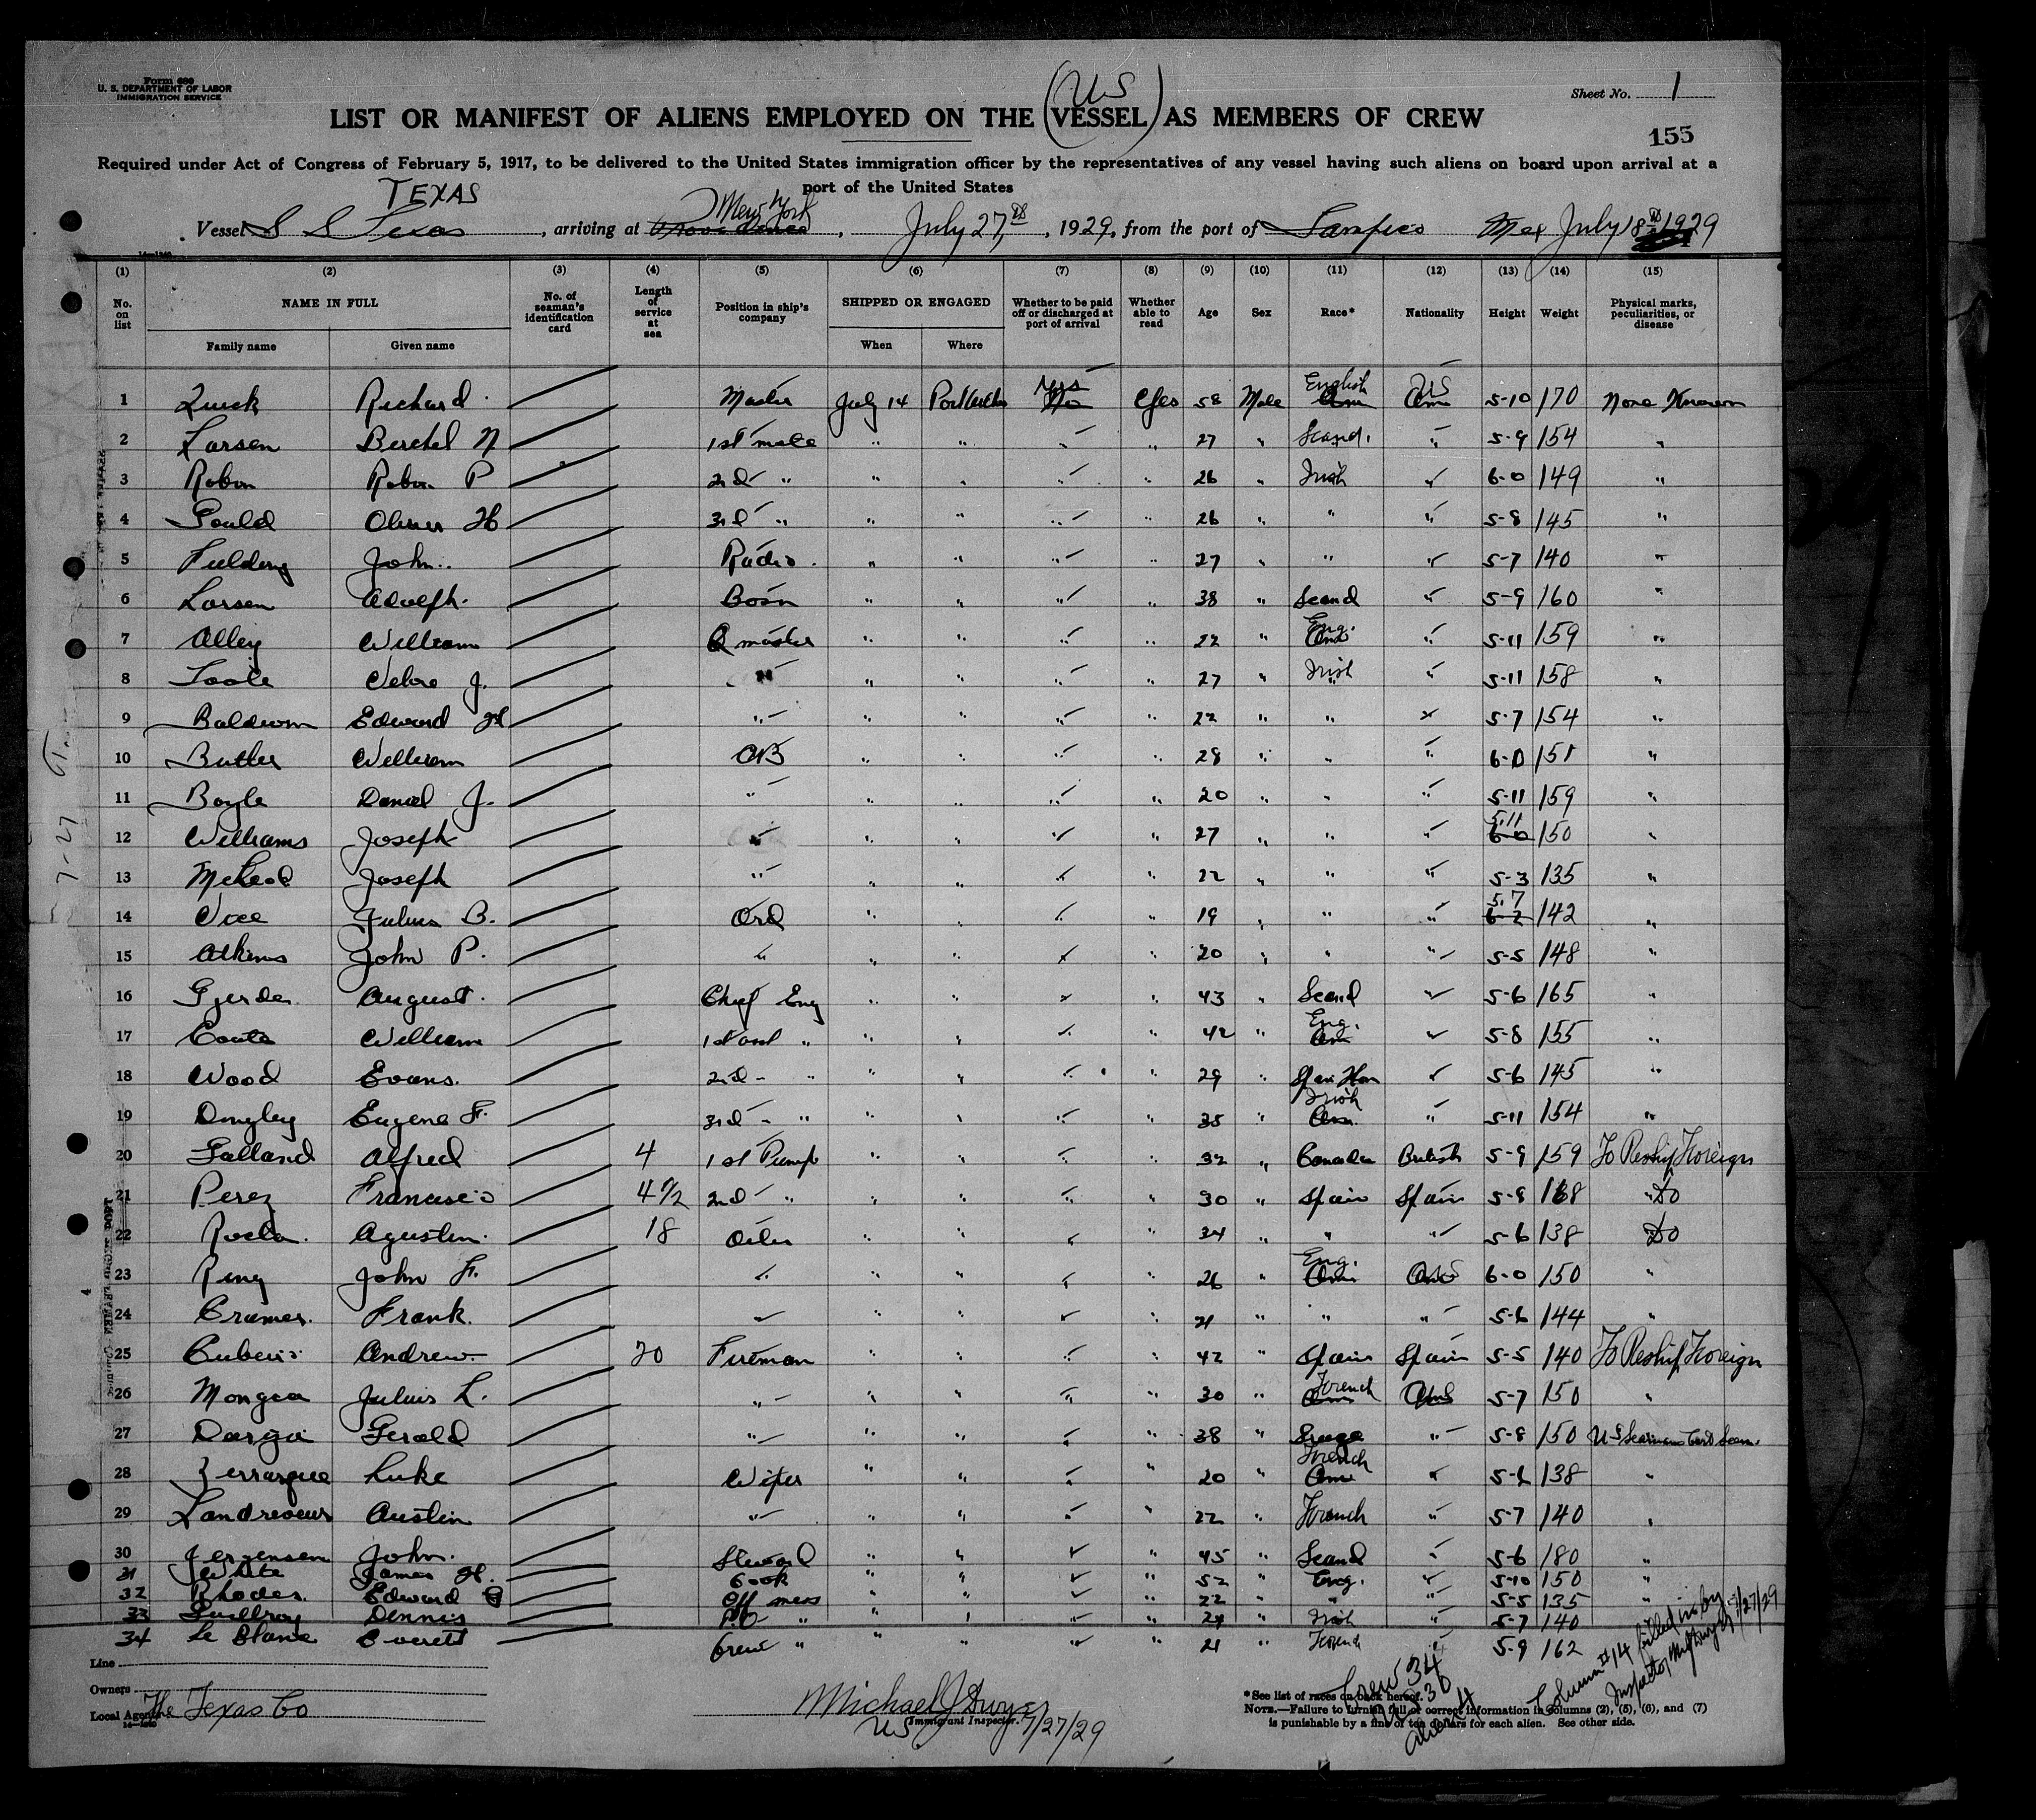 Form 680
U. S. DEPARTMENT OF LABOR
IMMIGRATION SERVICE
Sheet No. 1
155
(US)
LIST OR MANIFEST OF ALIENS EMPLOYED ON THE VESSEL AS MEMBERS OF CREW
Required under Act of Congress of February 5, 1917, to be delivered to the United States immigration officer by the representatives of any vessel having such aliens on board upon arrival at a
port of the United States
TEXAS
New York
Vessel S S Texas, arriving at Providence, July 27, 1929, from the port of Tampico Mex July 18 1929
(1) (2) (3) (4) (5) (6) (7) (8) (9) (10) (11) (12) (13) (14) (15)
No. on list NAME IN FULL No. of seaman's identification card Length of service at sea Position in ship's company SHIPPED OR ENGAGED Whether to be paid off or discharged at port of arrival Whether able to read Age Sex Race* Nationality Height Weight Physical marks, peculiarities, or disease
Family name Given name When Where
1 Quick Richard Master July 14 Port Arthur Yes No Yes 58 Male English Am US Am 5-10 170 None Known
2 Larsen Berthel N 1st mate " " " " 27 " Scand. " 5-9 154 "
3 Robin P 2nd " " " " " 26 " Irish " 6-0 149 "
4 Gould Oliver H 3rd " " " " " 26 " " " 5-8 145 "
5 Fielding John Radio " " " " 27 " " " 5-7 140 "
6 Larsen Adolph Bosn " " " " 38 " Scand " 5-9 160 "
7 Alley William Q master " " " " 22 " Eng. Am " 5-11 159 "
8 Toole J. " " " " " 27 " Irish " 5-11 158 "
9 Baldwin Edward H " " " " " 22 " " " 5-7 154 "
10 Butler William AB " " " " 28 " " " 6-0 151 "
11 Boyle Daniel J. " " " " " 20 " " " 5-11 159 "
12 Williams Joseph " " " " " 27 " " " 5.11 6-0 150 "
13 McLeod Joseph " " " " " 22 " " " 5-3 135 "
14 Vice Julius B. Ord " " " " 19 " " " 5.7 6-2 142 "
15 Atkins John P. " " " " " 20 " " " 5-5 148 "
16 Gjerde August Chief Eng " " " " 43 " Scand " 5-6 165 "
17 Coate William 1st asst " " " " " 42 " Eng. Am " 5-8 155 "
18 Wood Evans. 2nd - " " " " " 29 " " 5-6 145 "
19 Dingley Eugene F. 3rd - " " " " " 35 " Irish Am. " 5-11 154 "
20 Galland Alfred 4 1st Pump " " " " 32 " Canada British 5-9 159 To Reship Foreign
21 Perez Francisco 4 1/2 2nd " " " " " 30 " Spain Spain 5-8 168 Do
22 Agustin 18 Oiler " " " " 34 " " " 5-6 138 Do
23 John F. " " " " " 26 " Eng. Am US 6-0 150 "
24 Cramer Frank " " " " " 21 " " " 5-6 144 "
25 Andrew 20 Fireman " " " " 42 " Spain Spain 5-5 140 To Reship Foreign
26 Julius L. " " " " " 30 " French Am US 5-7 150 "
27 Gerald " " " " " 38 " " 5-8 150 US Seamans Cert Seen.
28 Luke Wiper " " " " 20 " French Am " 5-6 138 "
29 Austin " " " " " 22 " French " 5-7 140 "
30 Jergensen John Steward " " " " 45 " Scand " 5-6 180 "
31 White James H. Cook " " " " 52 " Eng. " 5-10 150 "
32 Rhodes Edward Off mess " " " " 22 " " " 5-5 135 "
33 Guillroy Dennis P.O " " " " " 24 " Irish " 5-7 140
34 Le Blanc Everett Crew " " " " " 21 " French " 5-9 162
Column # 14 filled in by Inspector 7/27/29
Crew 34
US 30
Aliens 4
Line
Owners
Local Agents The Texas Co
Michael J Dwyer
US Immigrant Inspector. 7/27/29
* See list of races on back hereof.
NOTE.—Failure to furnish full or correct information in columns (2), (5), (6), and (7)
is punishable by a fine of ten dollars for each alien. See other side.